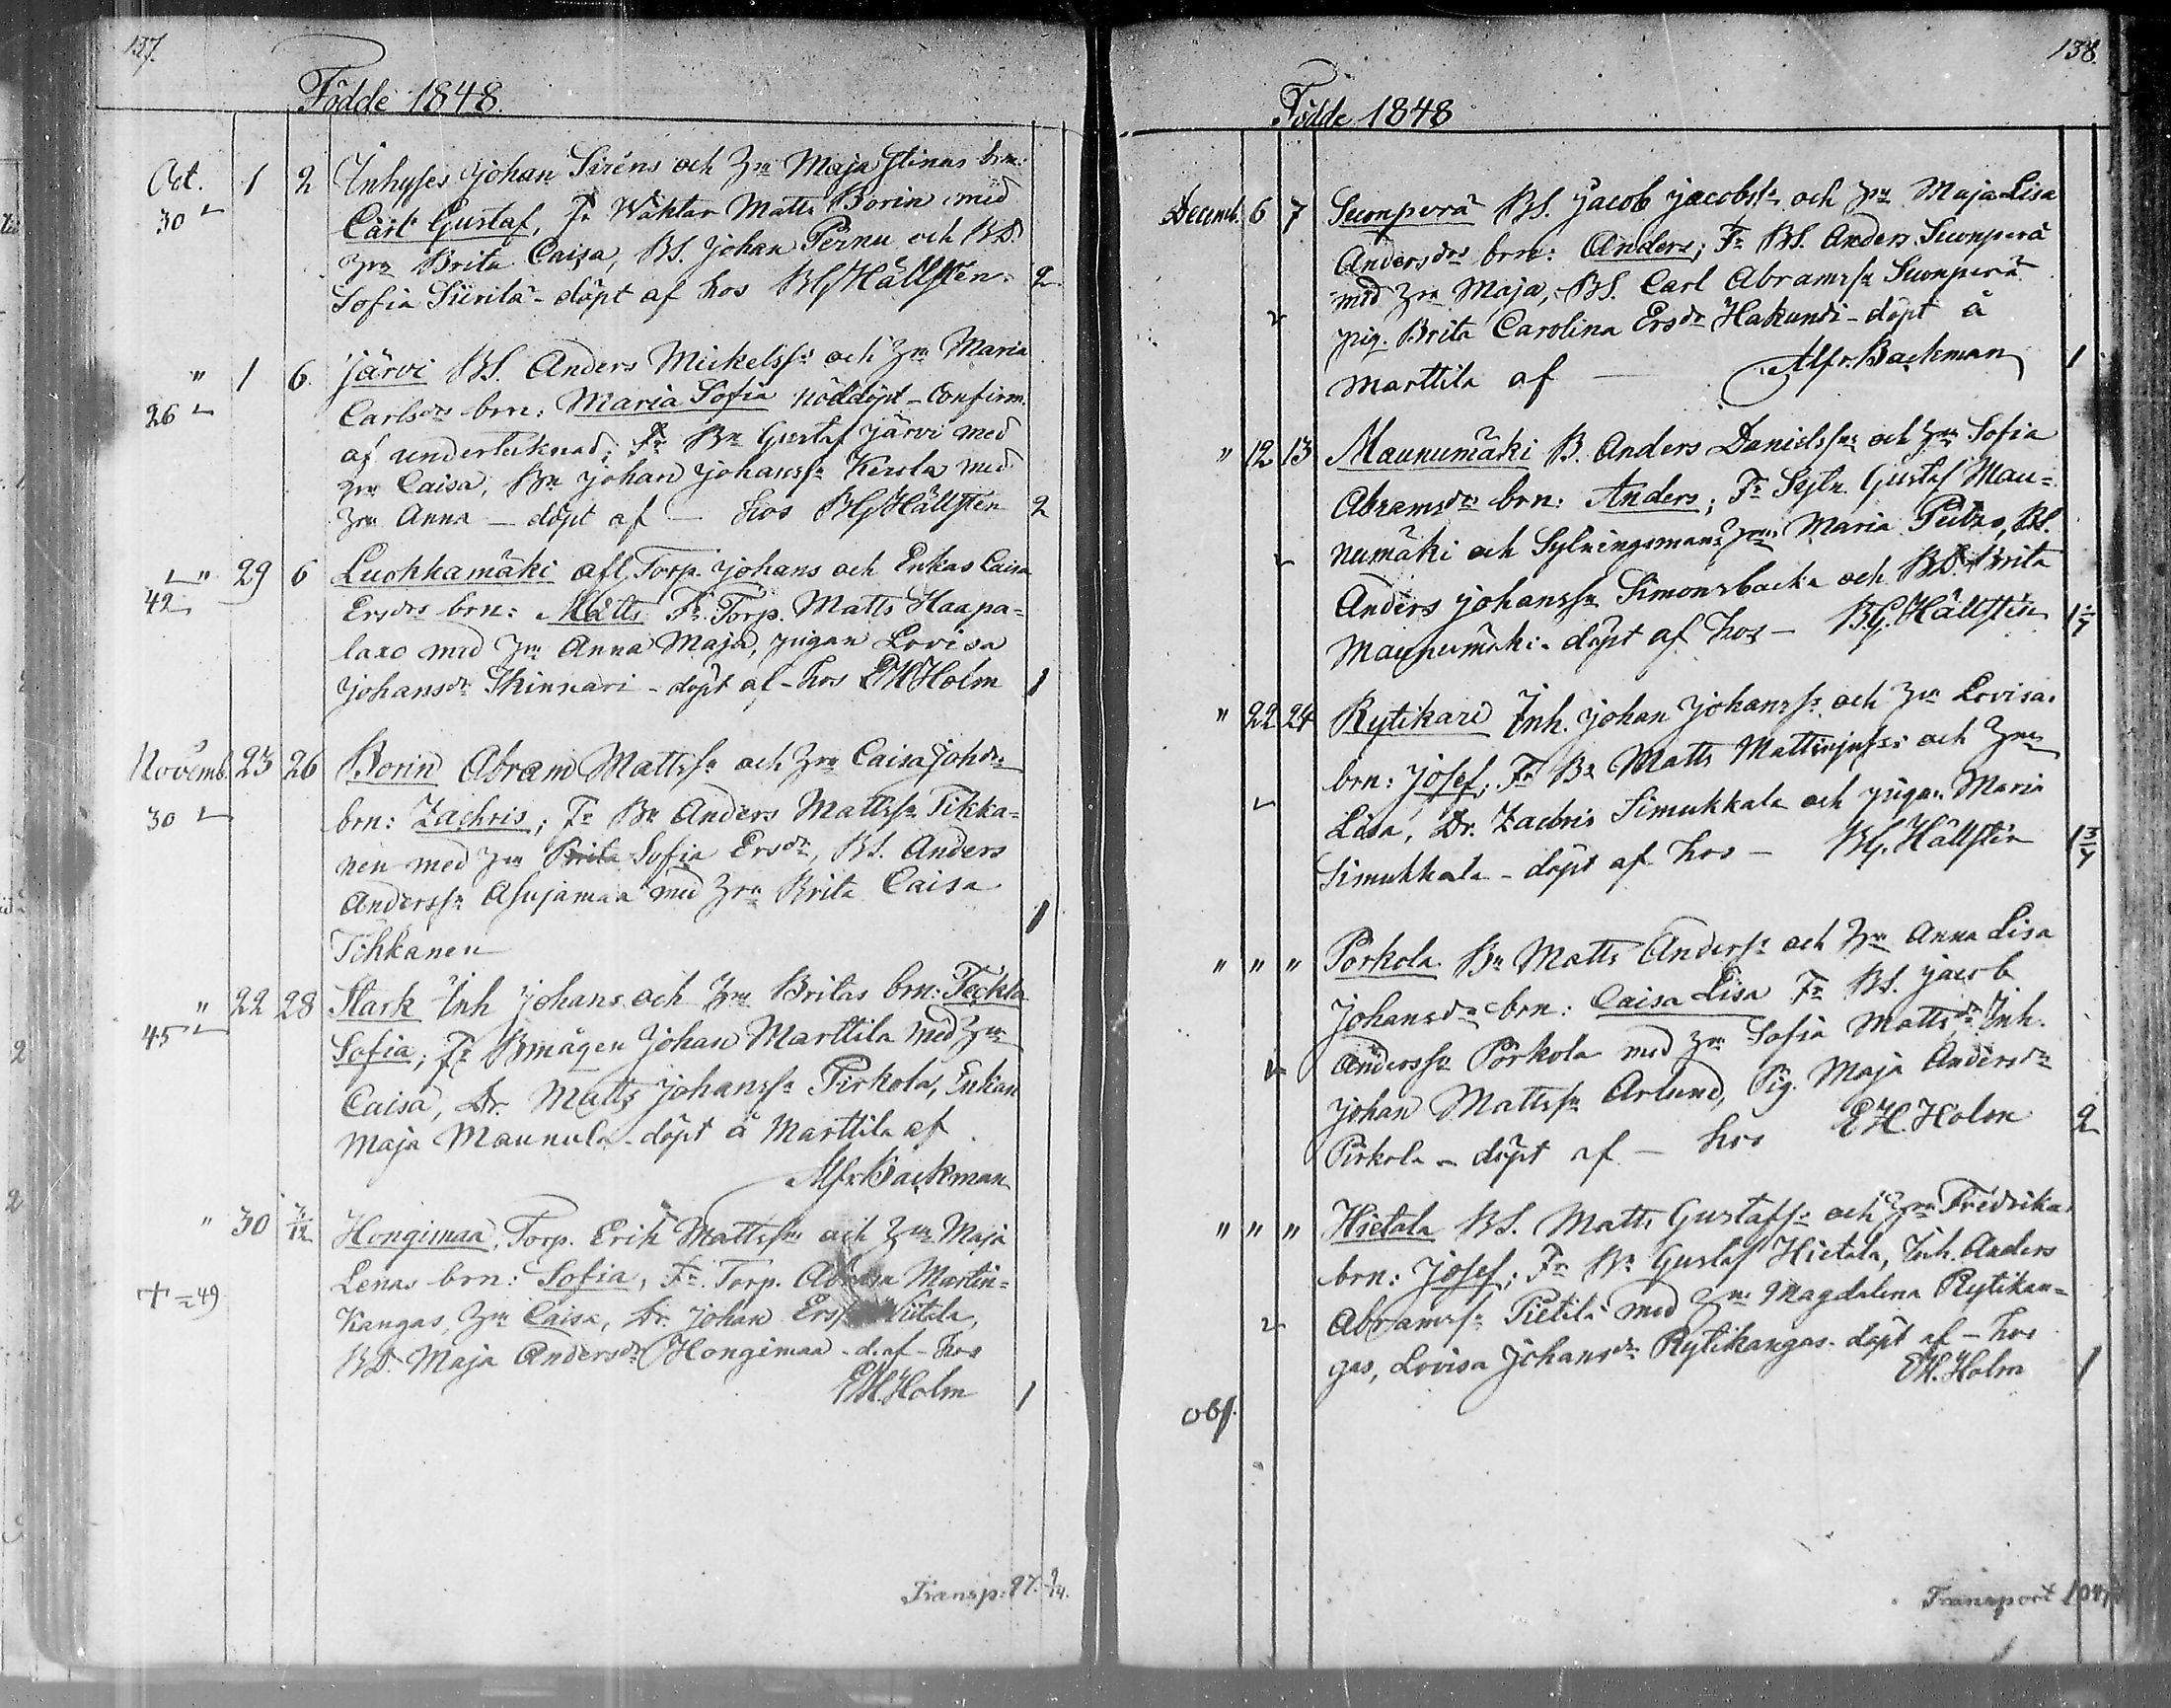 137.
Födde 1848.
Oct. 1 2 Inhyses Johan Siréns och hru Maja Stinas brn:
30 Carl Gustaf, Fr Waktar Matts Borin med
hru Brita Caisa, BS. Johan Pernu och BD.
Sofia Siirilä - döpt af hos BG Hällsten. 2
" 1 6. Järvi BS. Anders Mickelss: och hru Maria
26 Carlsdrs brn: Maria Sofia nöddöpt - Confirm.
af undertecknad; Fr Bn Gustaf Järvi med
hru Caisa, Bn Johan Johanss: Kerola med
hru Anna - döpt af - hos BG Hällsten 2
" 29 6 Luohkamäki afl. Torp. Johans och Enkas Caisa
42 Ersdrs brn: Matts Fr. Torp. Matts Haapa=
laxo med hru Anna Maja, pigan Lovisa
Johansdr Skinnari - döpt af - hos EH Holm 1
Novemb. 23 26 Borin Abram Mattss: och hru Caisa Johdrs
30 brn: Zachris; Fr Bn Anders Mattss: Tikka=
nen med hru Brita Sofia Ersdr, BS. Anders
Anderss: Asujamaa med hru Brita Caisa
Tikkanen 1
" 22 28 Stark Inh Johans och hru Britas brn: Teckla
45 Sofia; Fr Bmågen Johan Marttila med hru
Caisa, Dr. Matts Johanss: Pirkola, Enkan
Maja Maunula - döpt å Marttila af
Alfr Backman
" 30 3/12 Hongimaa, Torp. Erik Mattss: och hru Maja
Lenas brn: Sofia, Fr. Torp. Abram Martin=
+ 49 Kangas, hru Caisa, Dr. Johan Erss: Viitala,
BD. Maja Andersdr Hongimaa - d. af - hos
EH. Holm 1
Transp: 97.
138.
Födde 1848
Decemb. 6 7 Suonperä BS. Jacob Jacobss: och hru Maja Lisa
Andersdrs brn: Anders; Fr BS. Anders Suonperä
med hru Maja, BS. Carl Abramss: Suonperä
pig. Brita Carolina Ersdr Hakundi - döpt å
Marttila af - Alfr. Backman 1
" 12 13 Maunumäki B. Anders Danielss: och hru Sofia
Abramsdrs brn: Anders; Fr Sytn. Gustaf Mau=
numäki och Sytningsmans hru Maria Peitzo, BS.
Anders Johanss: Simonsbacka och BD. Brita
Maunumäki - döpt af hos - B.G. Hällsten
" 22 24 Rytikari Inh. Johan Johanss: och hru Lovisas
brn: Josef; Fr Bn Matts Mattinjuss: och hru
Lisa, Dr. Zachris Simukkala och pigan Maria
Simukkala - döpt af hos - BG. Hällsten
" " " Porkola Bn Matts Anderss: och hru Anna Lisa
Johansdrs brn: Caisa Lisa Fr BS. Jacob
Anderss: Porkola med hru Sofia Mattsdr, Inh.
Johan Mattss: Arlund, Pig. Maja Andersdr
Pirkola - döpt af - hos EH Holm 2
" " " Hietala BS. Matts Gustafs: och hru Fredrikas
brn: Josef; Fr Bn Gustaf Hietala, Inh. Anders
Abramss: Pietilä med hru Magdalena Rytikan=
gas, Lovisa Johansdr Rytikangas - döpt af - hos
EH. Holm 1
Obs.
Transport